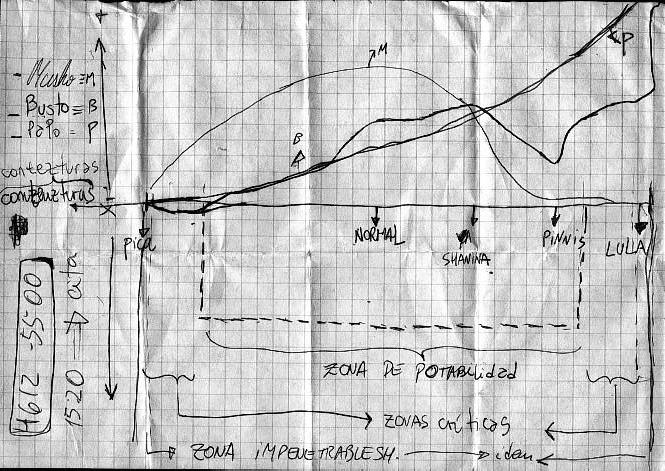 +
M
P
- Musho = M
- Busto = B
- Papo = P
B
contezturas
contezturas
X
Pica
NORMAL
SHANINA
PINNIS
LULLA
4612-5500
15:20 → cita
ZONA DE POTABILIdad
ZONAS CRíticas
ZONA iMPENETRABLESH.
idem